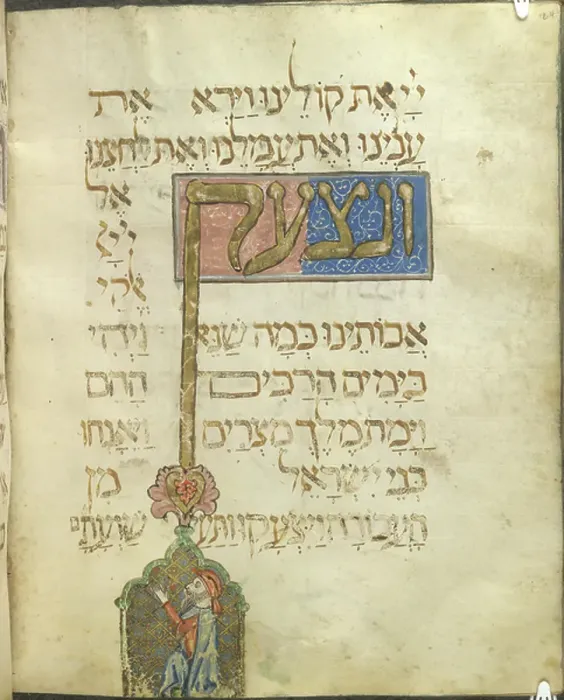 ייי את קולינו וירא את
ענינו ואת עמלנו ואת לחצנו
ונצעק אל
ייי
אלקי
אבותינו כמה שנא ויהי
בימים הרבים ההם
וימת מלך מצרים ויאנחו
בני ישראל מן
העבודה ויצעקו ותעל שועתם